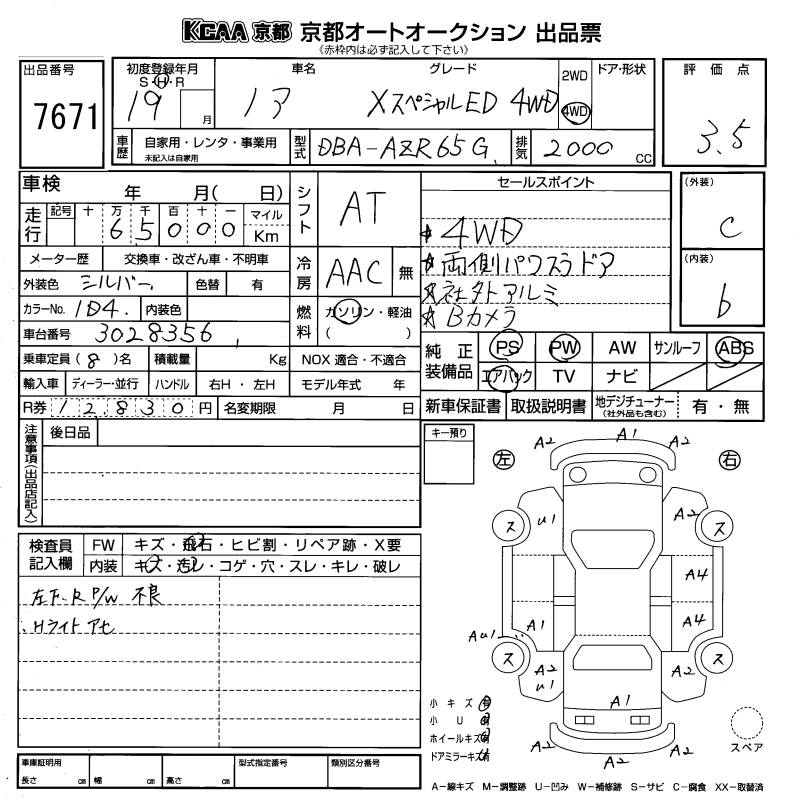 KCAA 京都 京都オートオークション 出品票
《赤枠内は必ず記入して下さい》
出品番号
7671
初度登録年月
S・H・R
19 月
車名
ノア
グレード
XスペシャルED 4WD
2WD
4WD
ドア・形状
評価点
3.5
車歴
自家用・レンタ・事業用
未記入は自家用
型式
DBA-AZR65G
排気
2000 CC
車検 年 月( 日)
走行
記号 十 万 千 百 十 一 マイル
6 5 0 0 0 Km
メーター歴 交換車・改ざん車・不明車
外装色 シルバー 色替 有
カラーNo. 1D4 内装色
車台番号 3028356
乗車定員 (8)名 積載量 Kg NOX 適合・不適合
輸入車 ディーラー・並行 ハンドル 右H・左H モデル年式 年
R券 12830円 名変期限 月 日
シフト
AT
冷房
AAC 無
燃料
ガソリン・軽油
( )
セールスポイント
★4WD
★両側パワスラドア
★社外アルミ
★Bカメラ
(外装)
C
(内装)
b
純正装備品
PS PW AW サンルーフ ABS
エアバック TV ナビ
新車保証書 取扱説明書 地デジチューナー
(社外品も含む) 有・無
注意事項(出品店記入)
後日品
キー預り
検査員記入欄
FW キズ・飛石・ヒビ割・リペア跡・X要
内装 キズ・汚レ・コゲ・穴・スレ・キレ・破レ
左下.R P/W 不良
.Hライトアセ
左 右
A2 A1 A2
ス U1 A2 ス
A4
A1 A4
AU1
ス A2 U1 A2 ス
A1
A2 A2
小キズ 有
小U 有
ホイールキズ有
ドアミラーキズ有
スペア
車庫証明用
長さ cm 幅 cm 高さ cm
型式指定番号
類別区分番号
A-線キズ M-調整跡 U-凹み W-補修跡 S-サビ C-腐食 XX-取替済